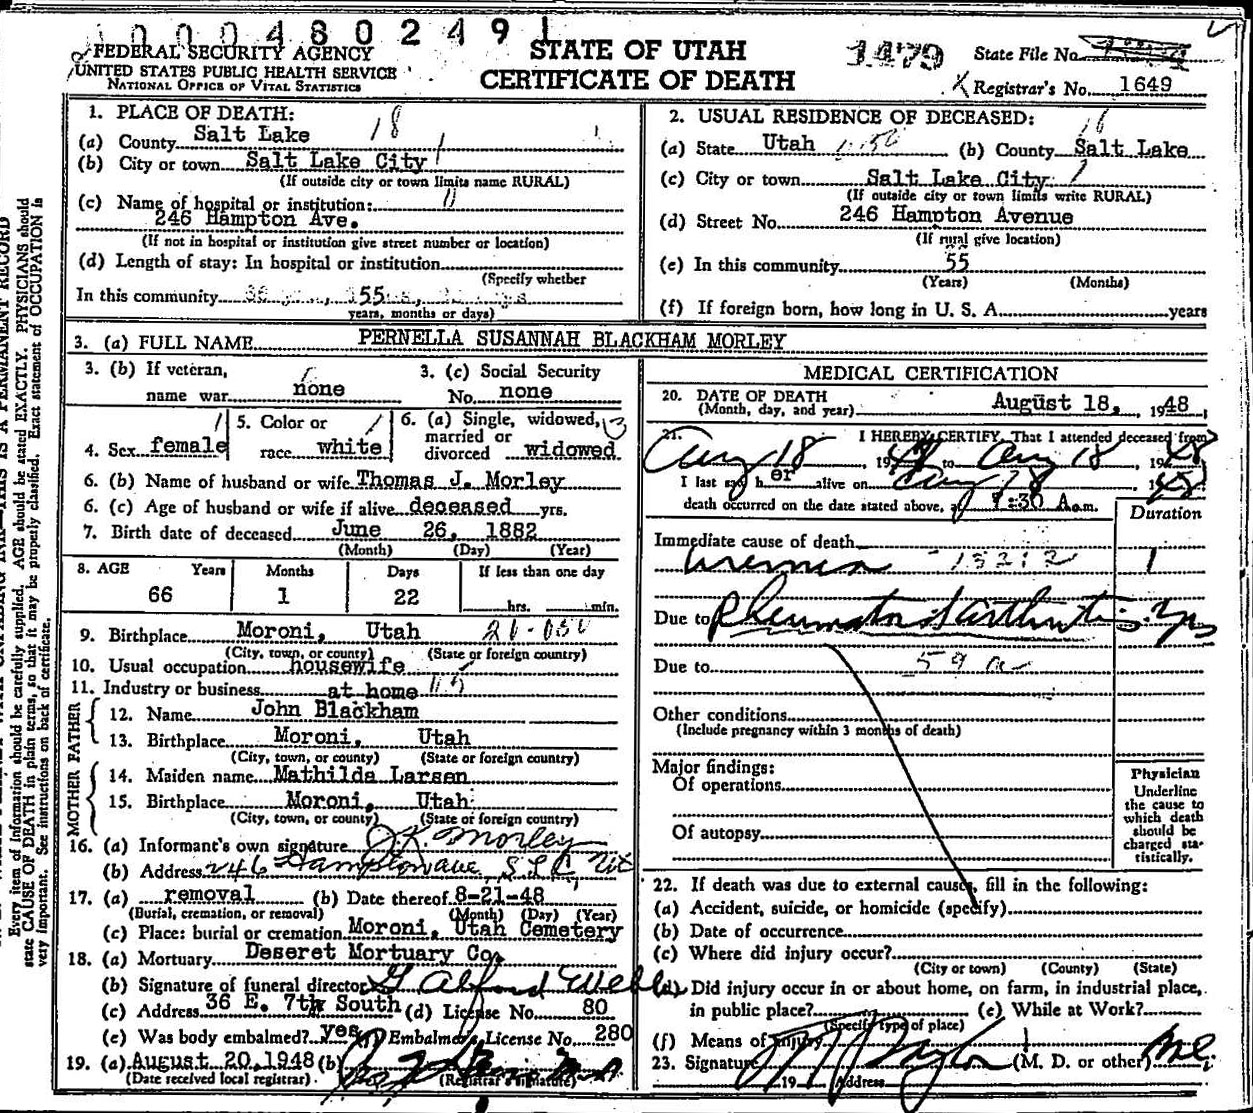 0004802491
FEDERAL SECURITY AGENCY
UNITED STATES PUBLIC HEALTH SERVICE
NATIONAL OFFICE OF VITAL STATISTICS
STATE OF UTAH
CERTIFICATE OF DEATH
1479
State File No.
Registrar's No. 1649
Every item of information should be carefully supplied. AGE should be stated EXACTLY. PHYSICIANS should
state CAUSE OF DEATH in plain terms, so that it may be properly classified. Exact statement of OCCUPATION is
very important. See instructions on back of certificate.
1. PLACE OF DEATH:
(a) County Salt Lake 18
(b) City or town Salt Lake City 1
(If outside city or town limits name RURAL)
(c) Name of hospital or institution:
246 Hampton Ave.
(If not in hospital or institution give street number or location)
(d) Length of stay: In hospital or institution
(Specify whether
In this community 55
years, months or days)
2. USUAL RESIDENCE OF DECEASED:
(a) State Utah (b) County Salt Lake
(c) City or town Salt Lake City
(If outside city or town limits write RURAL)
(d) Street No. 246 Hampton Avenue
(If rural give location)
(e) In this community 55
(Years) (Months)
(f) If foreign born, how long in U. S. A. years
3. (a) FULL NAME PERNELLA SUSANNAH BLACKHAM MORLEY
3. (b) If veteran, name war none
3. (c) Social Security No. none
4. Sex female
5. Color or race white
6. (a) Single, widowed, married or divorced widowed
6. (b) Name of husband or wife Thomas J. Morley
6. (c) Age of husband or wife if alive deceased yrs.
7. Birth date of deceased June 26, 1882
(Month) (Day) (Year)
8. AGE Years Months Days If less than one day
66 1 22 hrs. min.
9. Birthplace Moroni, Utah
(City, town, or county) (State or foreign country)
10. Usual occupation housewife
11. Industry or business at home
FATHER
12. Name John Blackham
13. Birthplace Moroni, Utah
(City, town, or county) (State or foreign country)
MOTHER
14. Maiden name Mathilda Larsen
15. Birthplace Moroni, Utah
(City, town, or county) (State or foreign country)
16. (a) Informant's own signature J.K. Morley
(b) Address 246 Hampton ave, S L C Ut
17. (a) removal (b) Date thereof 8-21-48
(Burial, cremation, or removal) (Month) (Day) (Year)
(c) Place: burial or cremation Moroni, Utah Cemetery
18. (a) Mortuary Deseret Mortuary Co.
(b) Signature of funeral director
(c) Address 36 E. 7th South (d) License No. 80
(e) Was body embalmed? yes Embalmer License No. 280
19. (a) August 20, 1948 (b)
(Date received local registrar) (Registrar's signature)
MEDICAL CERTIFICATION
20. DATE OF DEATH
(Month, day, and year) August 18, 1948
21. I HEREBY CERTIFY, That I attended deceased from
Aug 18, 1948 to Aug 18, 1948
I last saw her alive on Aug 18 1948
death occurred on the date stated above, at 7:30 A.m.
Duration
Immediate cause of death
Uremia 1
Due to Rheumatoid arthritis yrs
Due to 59 a
Other conditions
(Include pregnancy within 3 months of death)
Major findings:
Of operations
Of autopsy
Physician
Underline
the cause to
which death
should be
charged sta-
tistically.
22. If death was due to external causes, fill in the following:
(a) Accident, suicide, or homicide (specify)
(b) Date of occurrence
(c) Where did injury occur?
(City or town) (County) (State)
(d) Did injury occur in or about home, on farm, in industrial place,
in public place? (e) While at Work?
(Specify type of place)
(f) Means of injury
23. Signature (M. D. or other)
19 Address